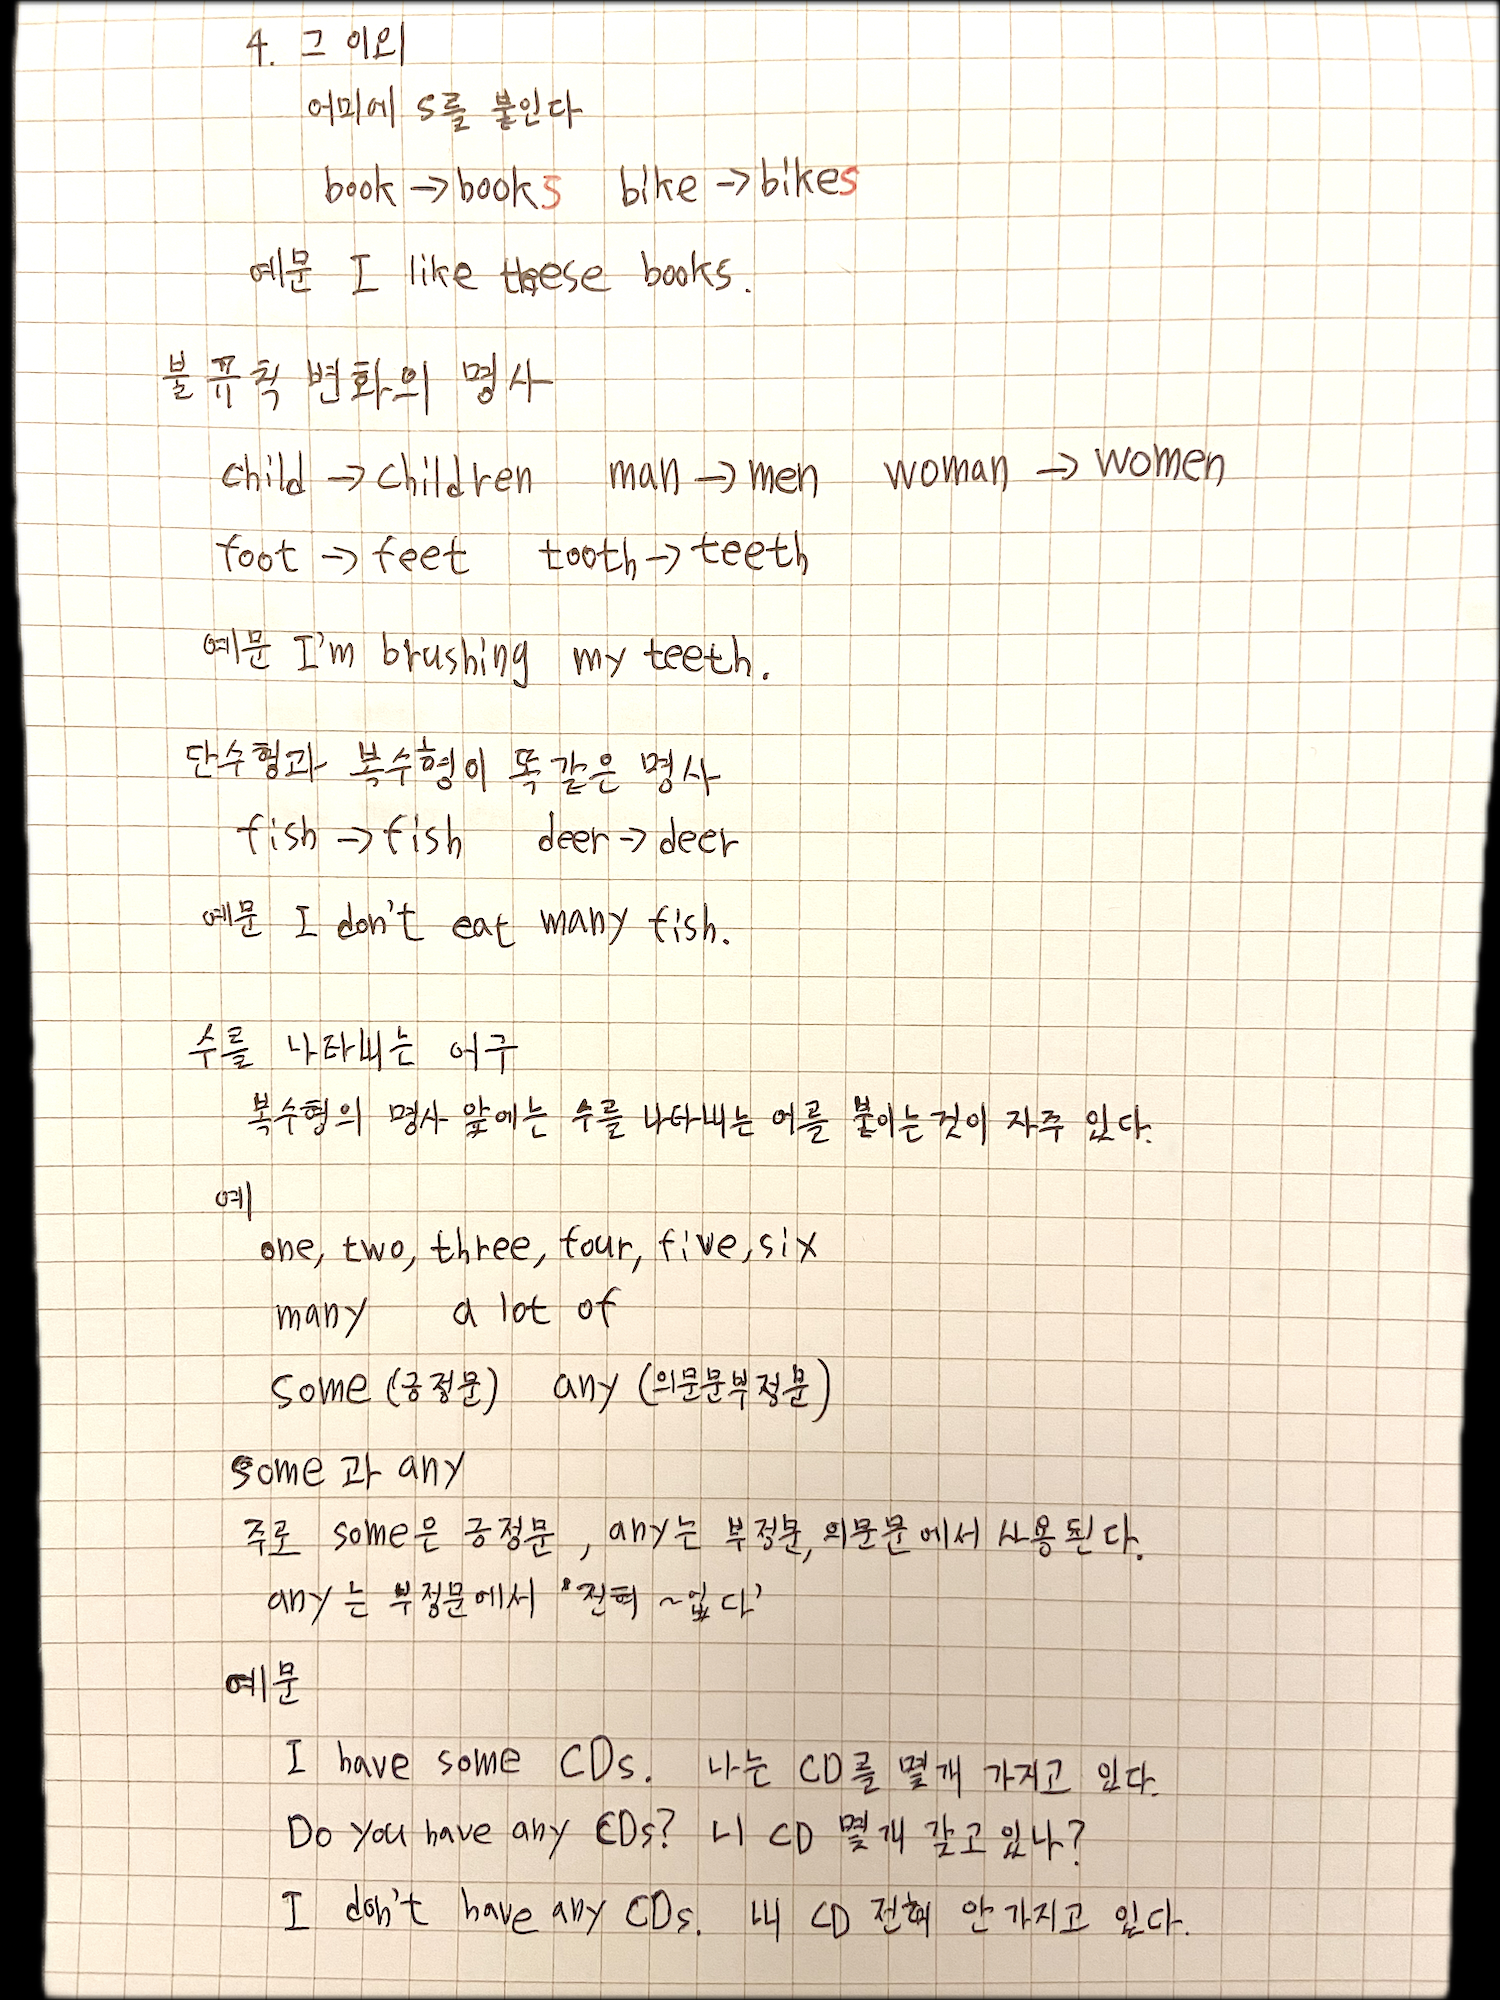 4. 그 이외
어미에 s를 붙인다
book → books bike → bikes
예문 I like these books.
불뀨칙 변화의 명사
child → children man → men woman → women
foot → feet tooth → teeth
예문 I'm brushing my teeth.
단수형과 복수형이 똑같은 명사
fish → fish deer → deer
예문 I don't eat many fish.
수를 나타내는 어구
복수형의 명사 앞에는 수를 나타내는 어를 붙이는것이 자주 있다.
예
one, two, three, four, five, six
many a lot of
some (긍정문) any (의문문부정문)
some과 any
주로 some은 긍정문, any는 부정문, 의문문에서 사용된다.
any는 부정문에서 '전혀 ~없다'
예문
I have some CDs. 나는 CD를 몇개 가지고 있다.
Do you have any CDs? 니 CD 몇개 갖고있나?
I don't have any CDs. 내 CD 전혀 안가지고 있다.